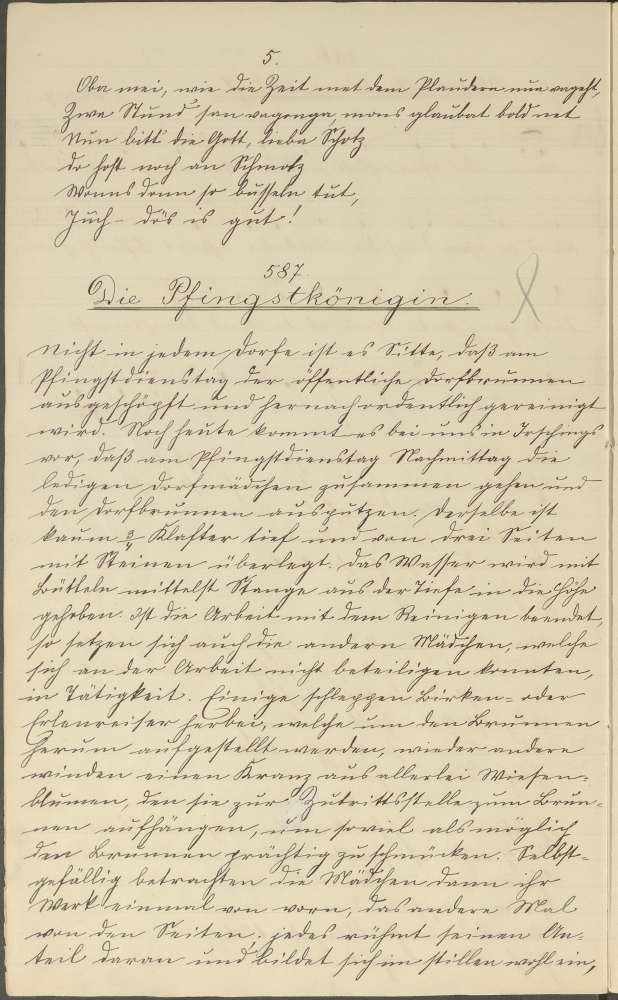 5.
Oba mei, wie die Zeit met dem Plaudern nua vageht,
Zwa Stund' san vagonga, mans glaubat bold net
Nun bitt' die Gott, lieba Schotz
do host noch an Schmotz
Wonns donn so busseln tut,
Juch - dös is gut!
587.
Die Pfingstkönigin.
Nicht in jedem Dorfe ist es Sitte, daß am
Pfingstdienstag der öffentliche Dorfbrunnen
ausgeschöpft und hernach ordentlich gereinigt
wird. Noch heute kommt es bei uns in Irschings
vor, daß am Pfingstdienstag Nachmittag die
ledigen Dorfmädchen zusammen gehen und
den Dorfbrunnen ausputzen. Derselbe ist
kaum 3/4 Klafter tief und von drei Seiten
mit Steinen überlegt. Das Wasser wird mit
Bütteln mittelst Stange aus der Tiefe in die Höhe
gehoben. Ist die Arbeit mit dem Reinigen beendet,
so setzen sich auch die andern Mädchen, welche
sich an der Arbeit nicht beteiligen konnten,
in Tätigkeit. Einige schleppen Birken= oder
Erlenreiser herbei, welche um den Brunnen
herum aufgestellt werden, wieder andere
winden einen Kranz aus allerlei Wiesen=
blumen, den sie zur Zutrittsstelle zum Brun=
nen aufhängen, um soviel als möglich
den Brunnen prächtig zu schmücken. Selbst=
gefällig betrachten die Mädchen dann ihr
Werk einmal von vorn, das andere Mal
von den Seiten; jedes rühmt seinen An=
teil daran und bildet sich im stillen wohl ein,